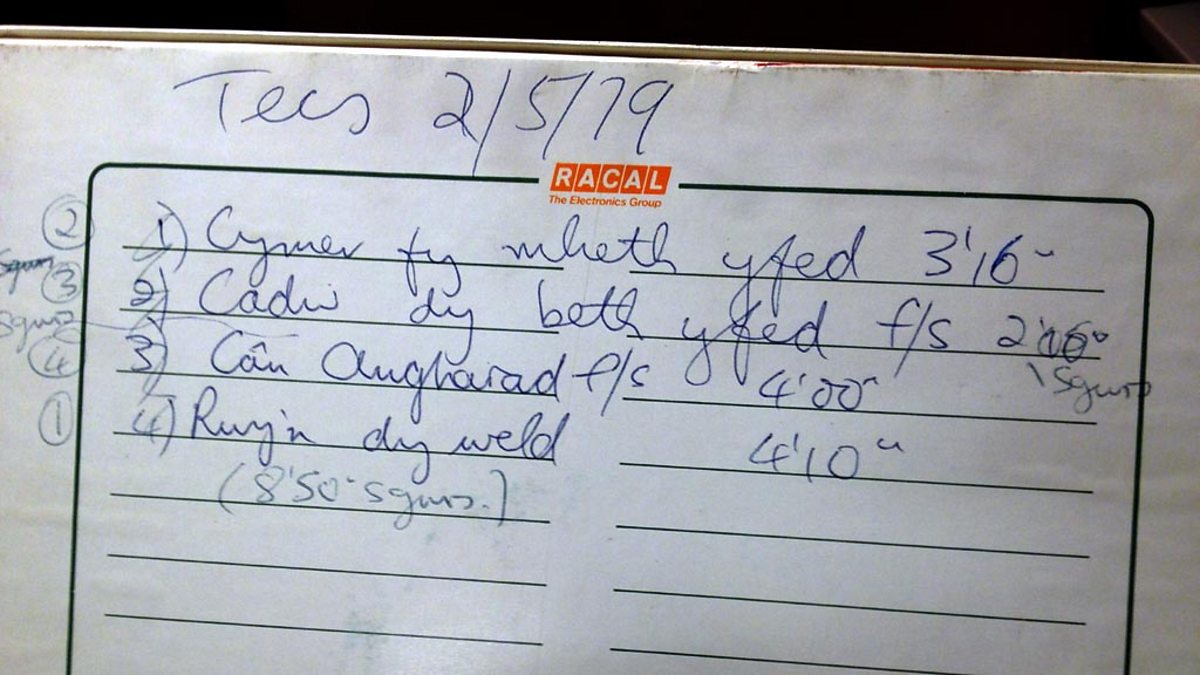 Tecs 2/5/79
RACAL
The Electronics Group
② 1) Cymer fy mheth yfed 3'16"
③ 2) Cadw dy beth yfed f/s 2'06"
sgwrs
④ 3) Cân Angharad f/s 4'00"
sgwrs
① 4) Rwy'n dy weld 4'10"
(8'50" sgwrs.)